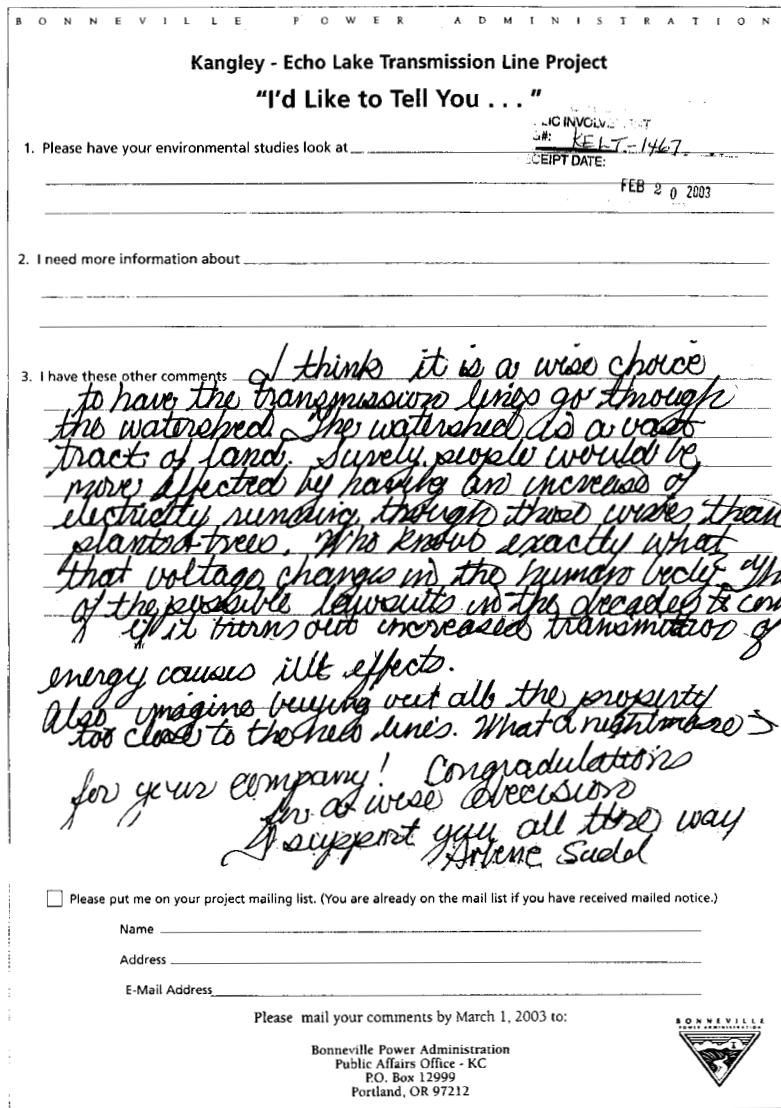 BONNEVILLE POWER ADMINISTRATION
Kangley - Echo Lake Transmission Line Project
"I'd Like to Tell You . . . "
INVOLV
KELT-1467
CEIPT DATE:
FEB 20 2003
1. Please have your environmental studies look at
2. I need more information about
3. I have these other comments I think it is a wise choice
to have the transmission lines go through
the watershed. The watershed is a vast
tract of land. Surely people would be
more affected by having an increase of
electricity running though those wires than
plants & trees. Who knows exactly what
that voltage changes in the human body.
of the possible lawsuits in the decades to com
if it turns out increased transmition of
energy causes ill effects.
Also imagine buying out all the property
too close to the new lines. What a nightmare
for your company! Congradulations
on a wise decision
I support you all the way
Arlene Sudd
Please put me on your project mailing list. (You are already on the mail list if you have received mailed notice.)
Name
Address
E-Mail Address
Please mail your comments by March 1, 2003 to:
Bonneville Power Administration
Public Affairs Office - KC
P.O. Box 12999
Portland, OR 97212
BONNEVILLE
POWER ADMINISTRATION